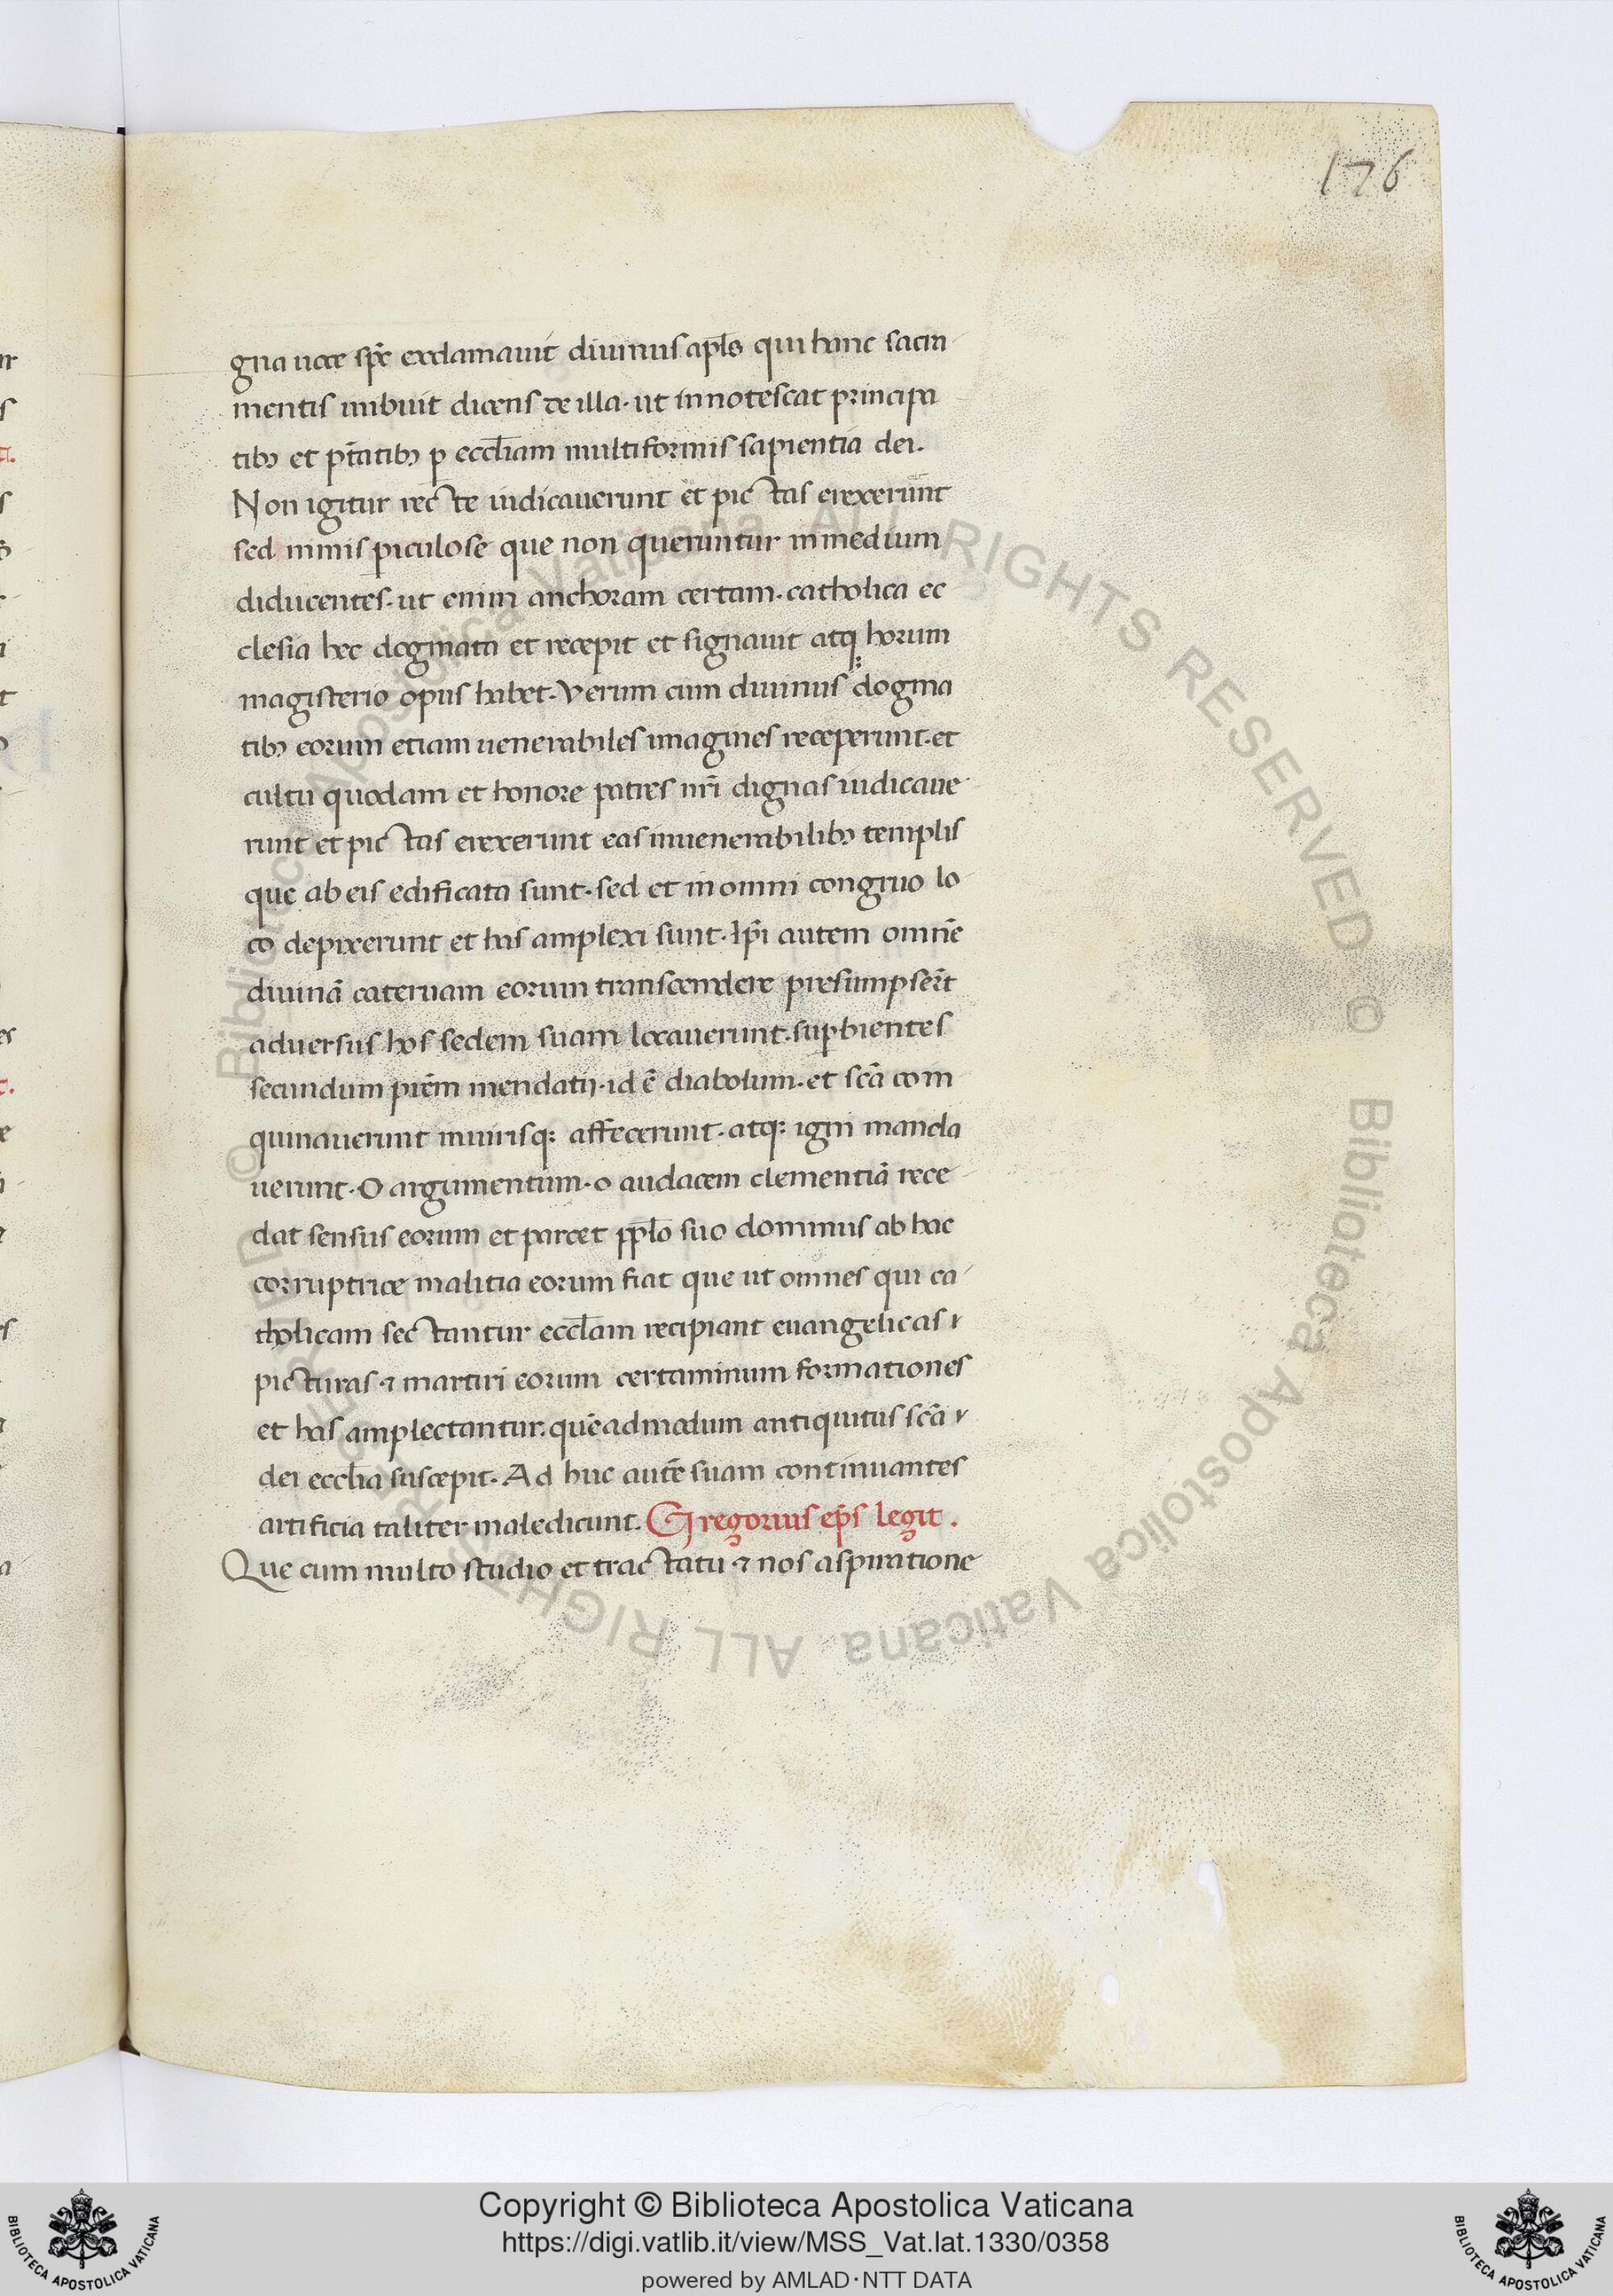 176
gna uoce spc̄ exclamauit diuinus apl̄s qui hanc sacra
mentis imbuit dicens de illa. ut innotescat principa
tibꝫ et ptātibꝫ ꝑ eccl̄iam multiformis sapientia dei.
Non igitur recte iudicauerunt et pictas erexerunt
sed nimis piculose que non queruntur in medium
diducentes. ut enim anchoram certam. catholica ec
clesia hec dogmata et recepit et signauit atq; horum
magisterio opus habet. Verum cum diuinis dogma
tibꝫ eorum etiam uenerabiles imagines receperunt. et
cultu quodam et honore patres nr̄i dignas iudicaue
runt et pictas erexerunt eas in uenerabilibꝫ templis
que ab eis edificata sunt. sed et in omni congruo lo
co depixerunt et has amplexi sunt. Ip̄i autem omnē
diuinā cateruam eorum transcendere presumpsert̄
aduersus hos sedem suam locauerunt. suꝑbientes
secundum prēm mendatij. id ē diabolum. et scā com
quinauerunt iniurisq; affecerunt. atq; igni manda
uerunt. O argumentum. o audacem clementiā rece
dat sensus eorum et parcet pplo suo dominus ab hac
corruptrice malitia eorum fiat que ut omnes qui ca
tholicam sectantur eccl̄am recipiant euangelicas
picturas. ⁊ martiri eorum certaminum formationes
et has amplectantur. quēadmodum antiquitus scā
dei eccl̄ia suscepit. Ad huc autē suam continuantes
artificia taliter maledicunt. Gregorius ep̄s legit.
Que cum multo studio et tractatu ⁊ nos aspiratione
© Biblioteca Apostolica Vaticana ALL RIGHTS RESERVED © Biblioteca Apostolica Vaticana ALL RIGHTS RESERVED
Copyright © Biblioteca Apostolica Vaticana
https://digi.vatlib.it/view/MSS_Vat.lat.1330/0358
powered by AMLAD·NTT DATA
BIBLIOTECA APOSTOLICA VATICANA
BIBLIOTECA APOSTOLICA VATICANA